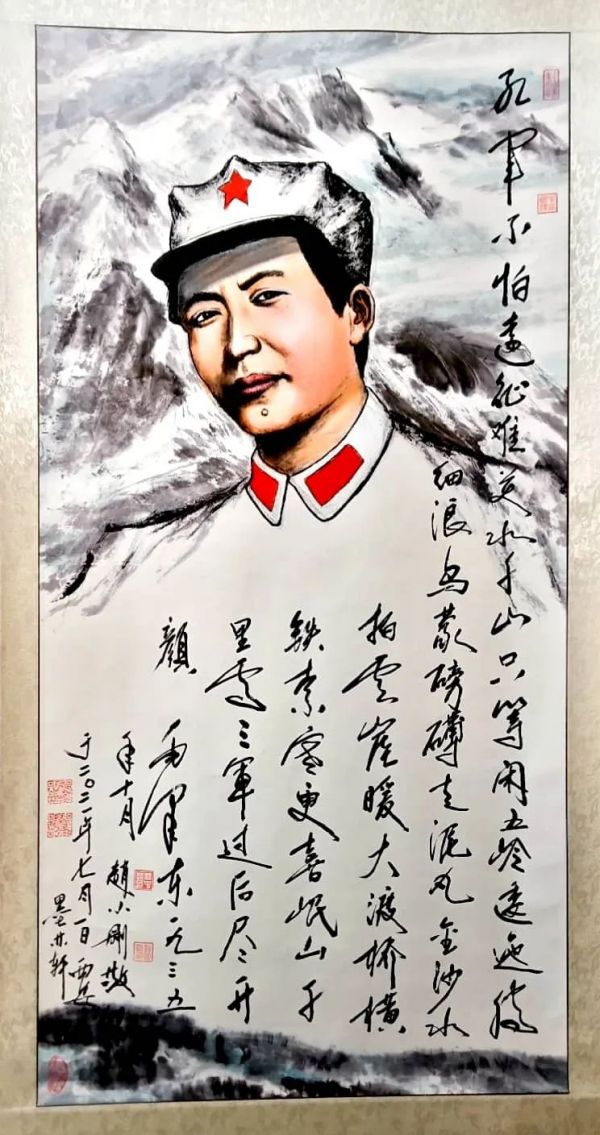 红軍不怕遠征难萬水千山只等闲五岭逶迤腾
细浪乌蒙磅礴走泥丸金沙水
拍雲崖暖大渡桥横
铁索寒更喜岷山千
里雪三軍过后尽开
颜 毛泽东一九三五
年十月 趙小刚敬
于二〇二一年七月一日西安